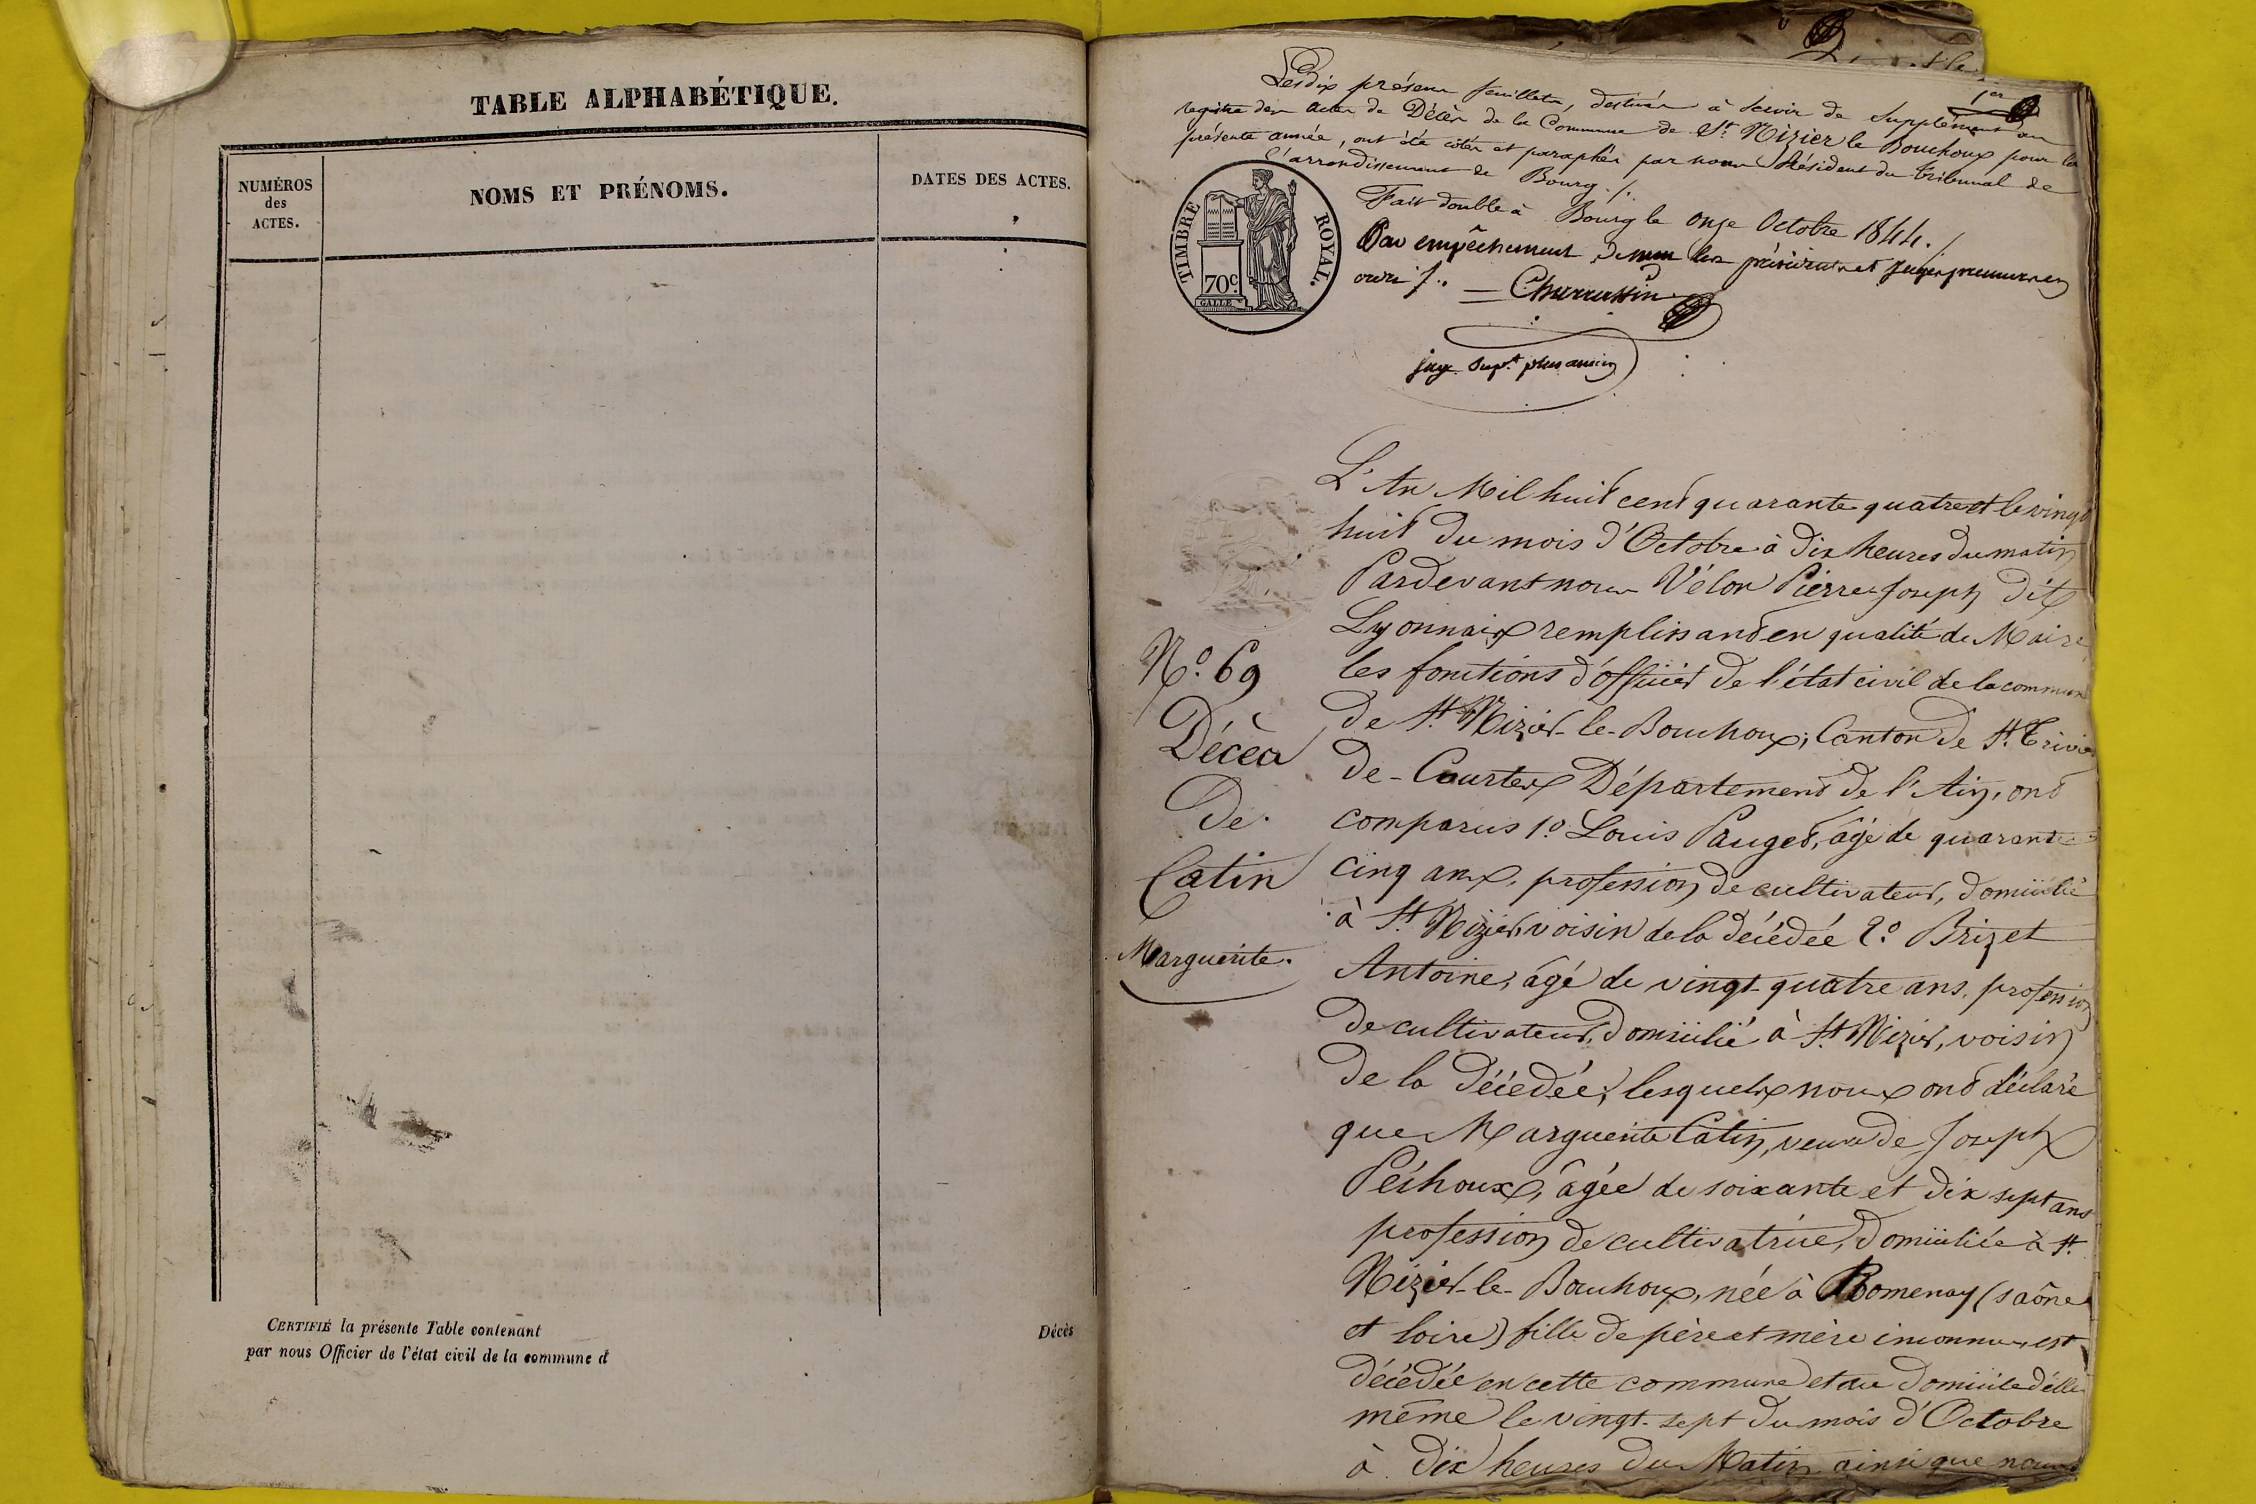 TABLE ALPHABÉTIQUE.
NUMÉROS
des
ACTES.
NOMS ET PRÉNOMS.
DATES DES ACTES.
CERTIFIÉ la présente Table contenant
par nous Officier de l'état civil de la commune d
Décès
1er
Les dix présens feuillets, destinés à servir de supplément au
registre des actes de Décès de la Commune de St. Nizier le Bouchoux pour la
présente année, ont été cotés et paraphés par nous Président du tribunal de
l'arrondissement de Bourg./.
Fait double à Bourg le onze Octobre 1844./
Par empêchement de mm les présidents et juges premiers en
ordre /. Charrassin
juge supt. plus ancien
TIMBRE ROYAL.
70c.
GALLE
L'An Mil huit cent quarante quatre et le vingt
huit du mois d'Octobre à dix heures du matin
Pardevant nous Vélon Pierre-Joseph dit
Lyonnais remplissant en qualité de Maire
les fonctions d'officier de l'état civil de la commune
de St. Nizier-le-Bouchoux, Canton de St. Trivier
de-Courtes Département de l'Ain, ont
comparus 1o. Louis Pauget, âgé de quarante
cinq ans, profession de cultivateur, domicilié
à St. Nizier, voisin de la décédée 2o. Brizet
Antoine, âgé de vingt-quatre ans, profession
de cultivateur, domicilié à St. Nizier, voisin
de la décédée, lesquels nous ont déclaré
que Marguerite Catin, veuve de Joseph
Péchoux, âgée de soixante et dix sept ans
profession de cultivatrice, domiciliée à St.
Nizier-le-Bouchoux, née à Romenay (saône
et loire) fille de père et mère inconnus, est
décédée en cette commune et au domicile d'elle
même le vingt-sept du mois d'Octobre
à dix heures du Matin ainsi que nous
No. 69
Décès
De
Catin
Marguerite.